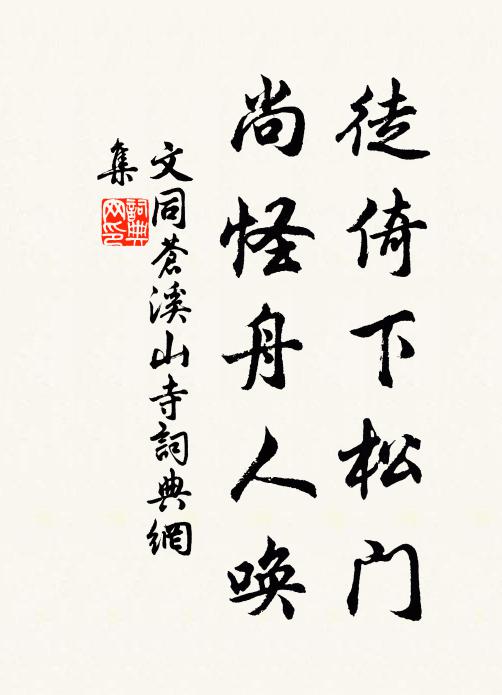 徒倚下松门
尚怪舟人唤
文同蒼溪山寺詞典網
集
詞典网印